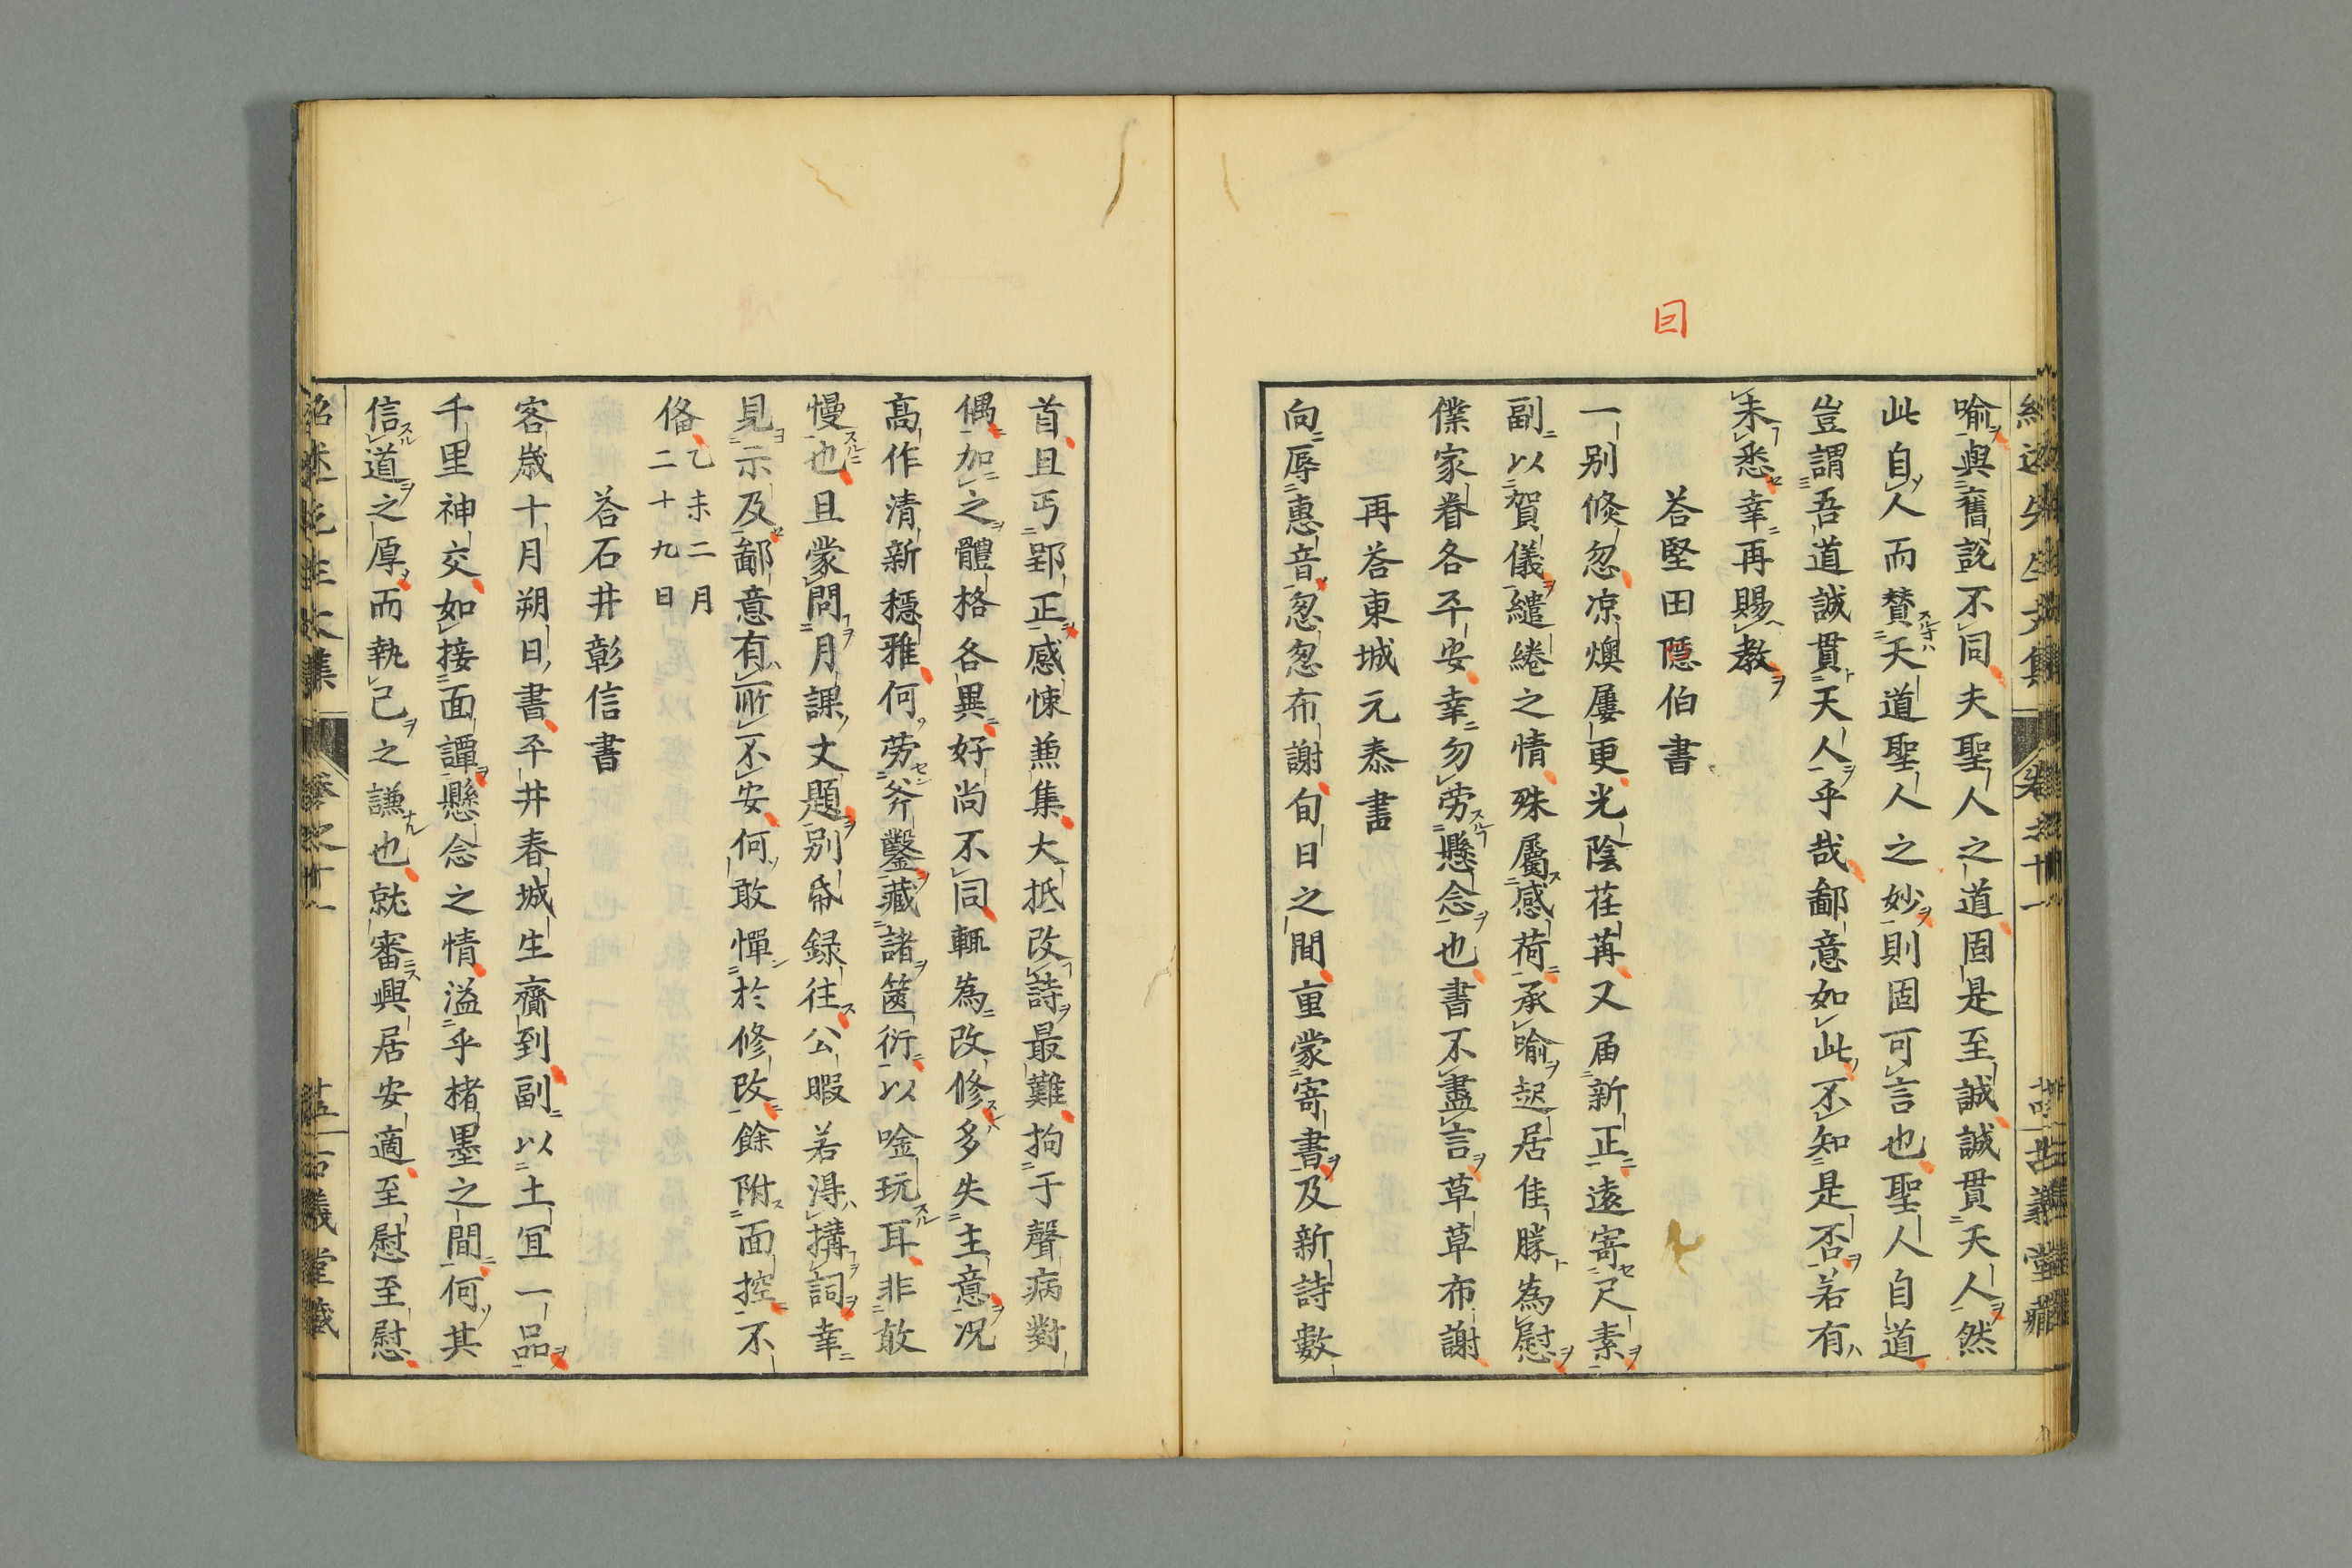 喻與舊說不同夫聖人之道固是至誠誠貫天人然
此自人而贊天道聖人之妙則固可言也聖人自道
豈謂吾道誠貫天人乎哉鄙意如此不知是否若有
未悉幸再賜教
答堅田隱伯書
一別倏忽凉燠屢更光陰荏苒又届新正遠寄尺素
副以賀儀繾綣之情殊屬感荷承喻起居佳勝為慰
僕家眷各平安幸勿勞懸念也書不盡言草草布謝
再答東城元泰書
向辱惠音怱怱布謝旬日之間重蒙寄書及新詩數
首且丐郢正感悚兼集大抵改詩最難拘于聲病對
偶加之體格各異好尚不同輒為改修多失主意況
高作清新穩雅何勞斧鑿藏諸篋衍以唫玩耳非敢
慢也且蒙問月課文題別帋録往公暇若得搆詞幸
見示及鄙意有所不安何敢憚於修改餘附面控不
俻乙未二月
二十九日
答石井彰信書
客歲十月朔日書平井春城生齎到副以土宜一品
千里神交如接面譚懸念之情溢乎楮墨之間何其
信道之厚而執己之謙也就審興居安適至慰至慰
紹述先生文集
卷之十一
古義堂藏